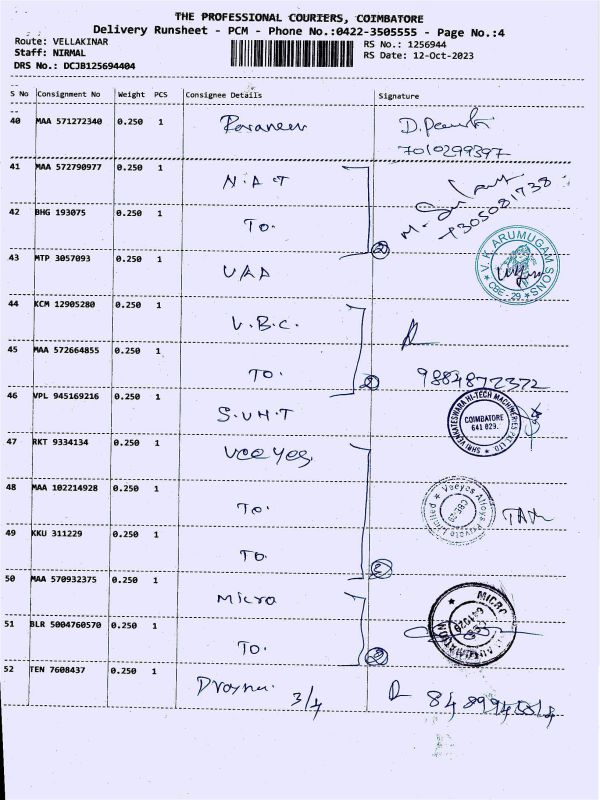 THE PROFESSIONAL COURIERS, COIMBATORE
Delivery Runsheet - PCM - Phone No.:0422-3505555 - Page No.:4
Route: VELLAKINAR RS No.: 1256944
Staff: NIRMAL RS Date: 12-Oct-2023
DRS No.: DCJB125694404
S No Consignment No Weight PCS Consignee Details Signature
40 MAA 571272340 0.250 1
7010299397
41 MAA 572790977 0.250 1 N.A.T
42 BHG 193075 0.250 1 TO.
9305081738
43 MTP 3057093 0.250 1 VKA
V.K. ARUMUGAM SONS
CBE - 29
44 KCM 12905280 0.250 1 V.B.C.
45 MAA 572664855 0.250 1 TO.
9884872372
46 VPL 945169216 0.250 1 S.V.H.T
SHRI VENKATESWARA HI-TECH MACHINERIES PVT. LTD.
COIMBATORE
641 029.
47 RKT 9334134 0.250 1 Vee yes.
48 MAA 102214928 0.250 1 TO.
Veeyes Alloys Private Limited
49 KKU 311229 0.250 1 TO.
50 MAA 570932375 0.250 1 Micro
MICRO
51 BLR 5004760570 0.250 1 TO.
52 TEN 7608437 0.250 1 3/4